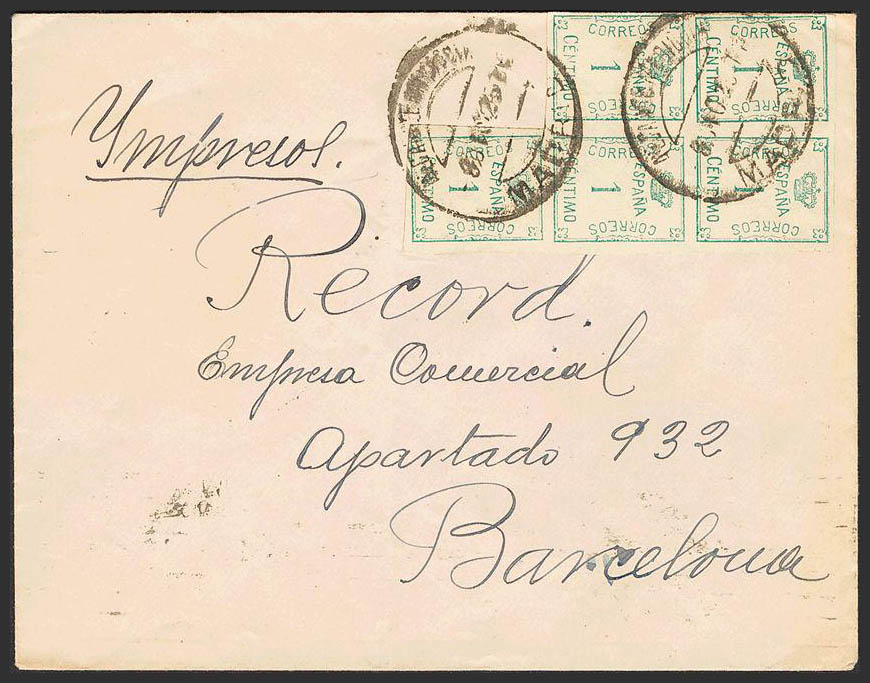 Impresos.
CORREOS ESPAÑA 1 CÉNTIMO CORREOS
CORREOS ESPAÑA 1 CÉNTIMO CORREOS
CORREOS ESPAÑA 1 CÉNTIMO CORREOS
CORREOS ESPAÑA 1 CÉNTIMO CORREOS
CORREOS ESPAÑA 1 CÉNTIMO CORREOS
MADRID
MADRID
Record.
Empresa Comercial
Apartado 932
Barcelona